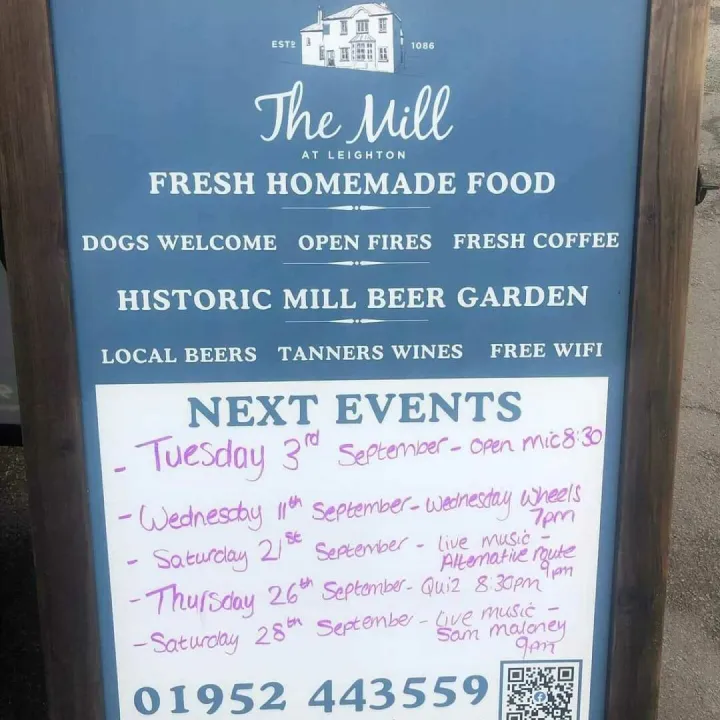 ESTD 1086
The Mill
AT LEIGHTON
FRESH HOMEMADE FOOD
DOGS WELCOME OPEN FIRES FRESH COFFEE
HISTORIC MILL BEER GARDEN
LOCAL BEERS TANNERS WINES FREE WIFI
NEXT EVENTS
- Tuesday 3rd September - Open mic 8:30
- Wednesday 11th September - Wednesday Wheels
7pm
- Saturday 21st September - live music -
Alternative route
9pm
- Thursday 26th September - Quiz 8:30pm
- Saturday 28th September - live music -
Sam maloney
9pm
01952 443559